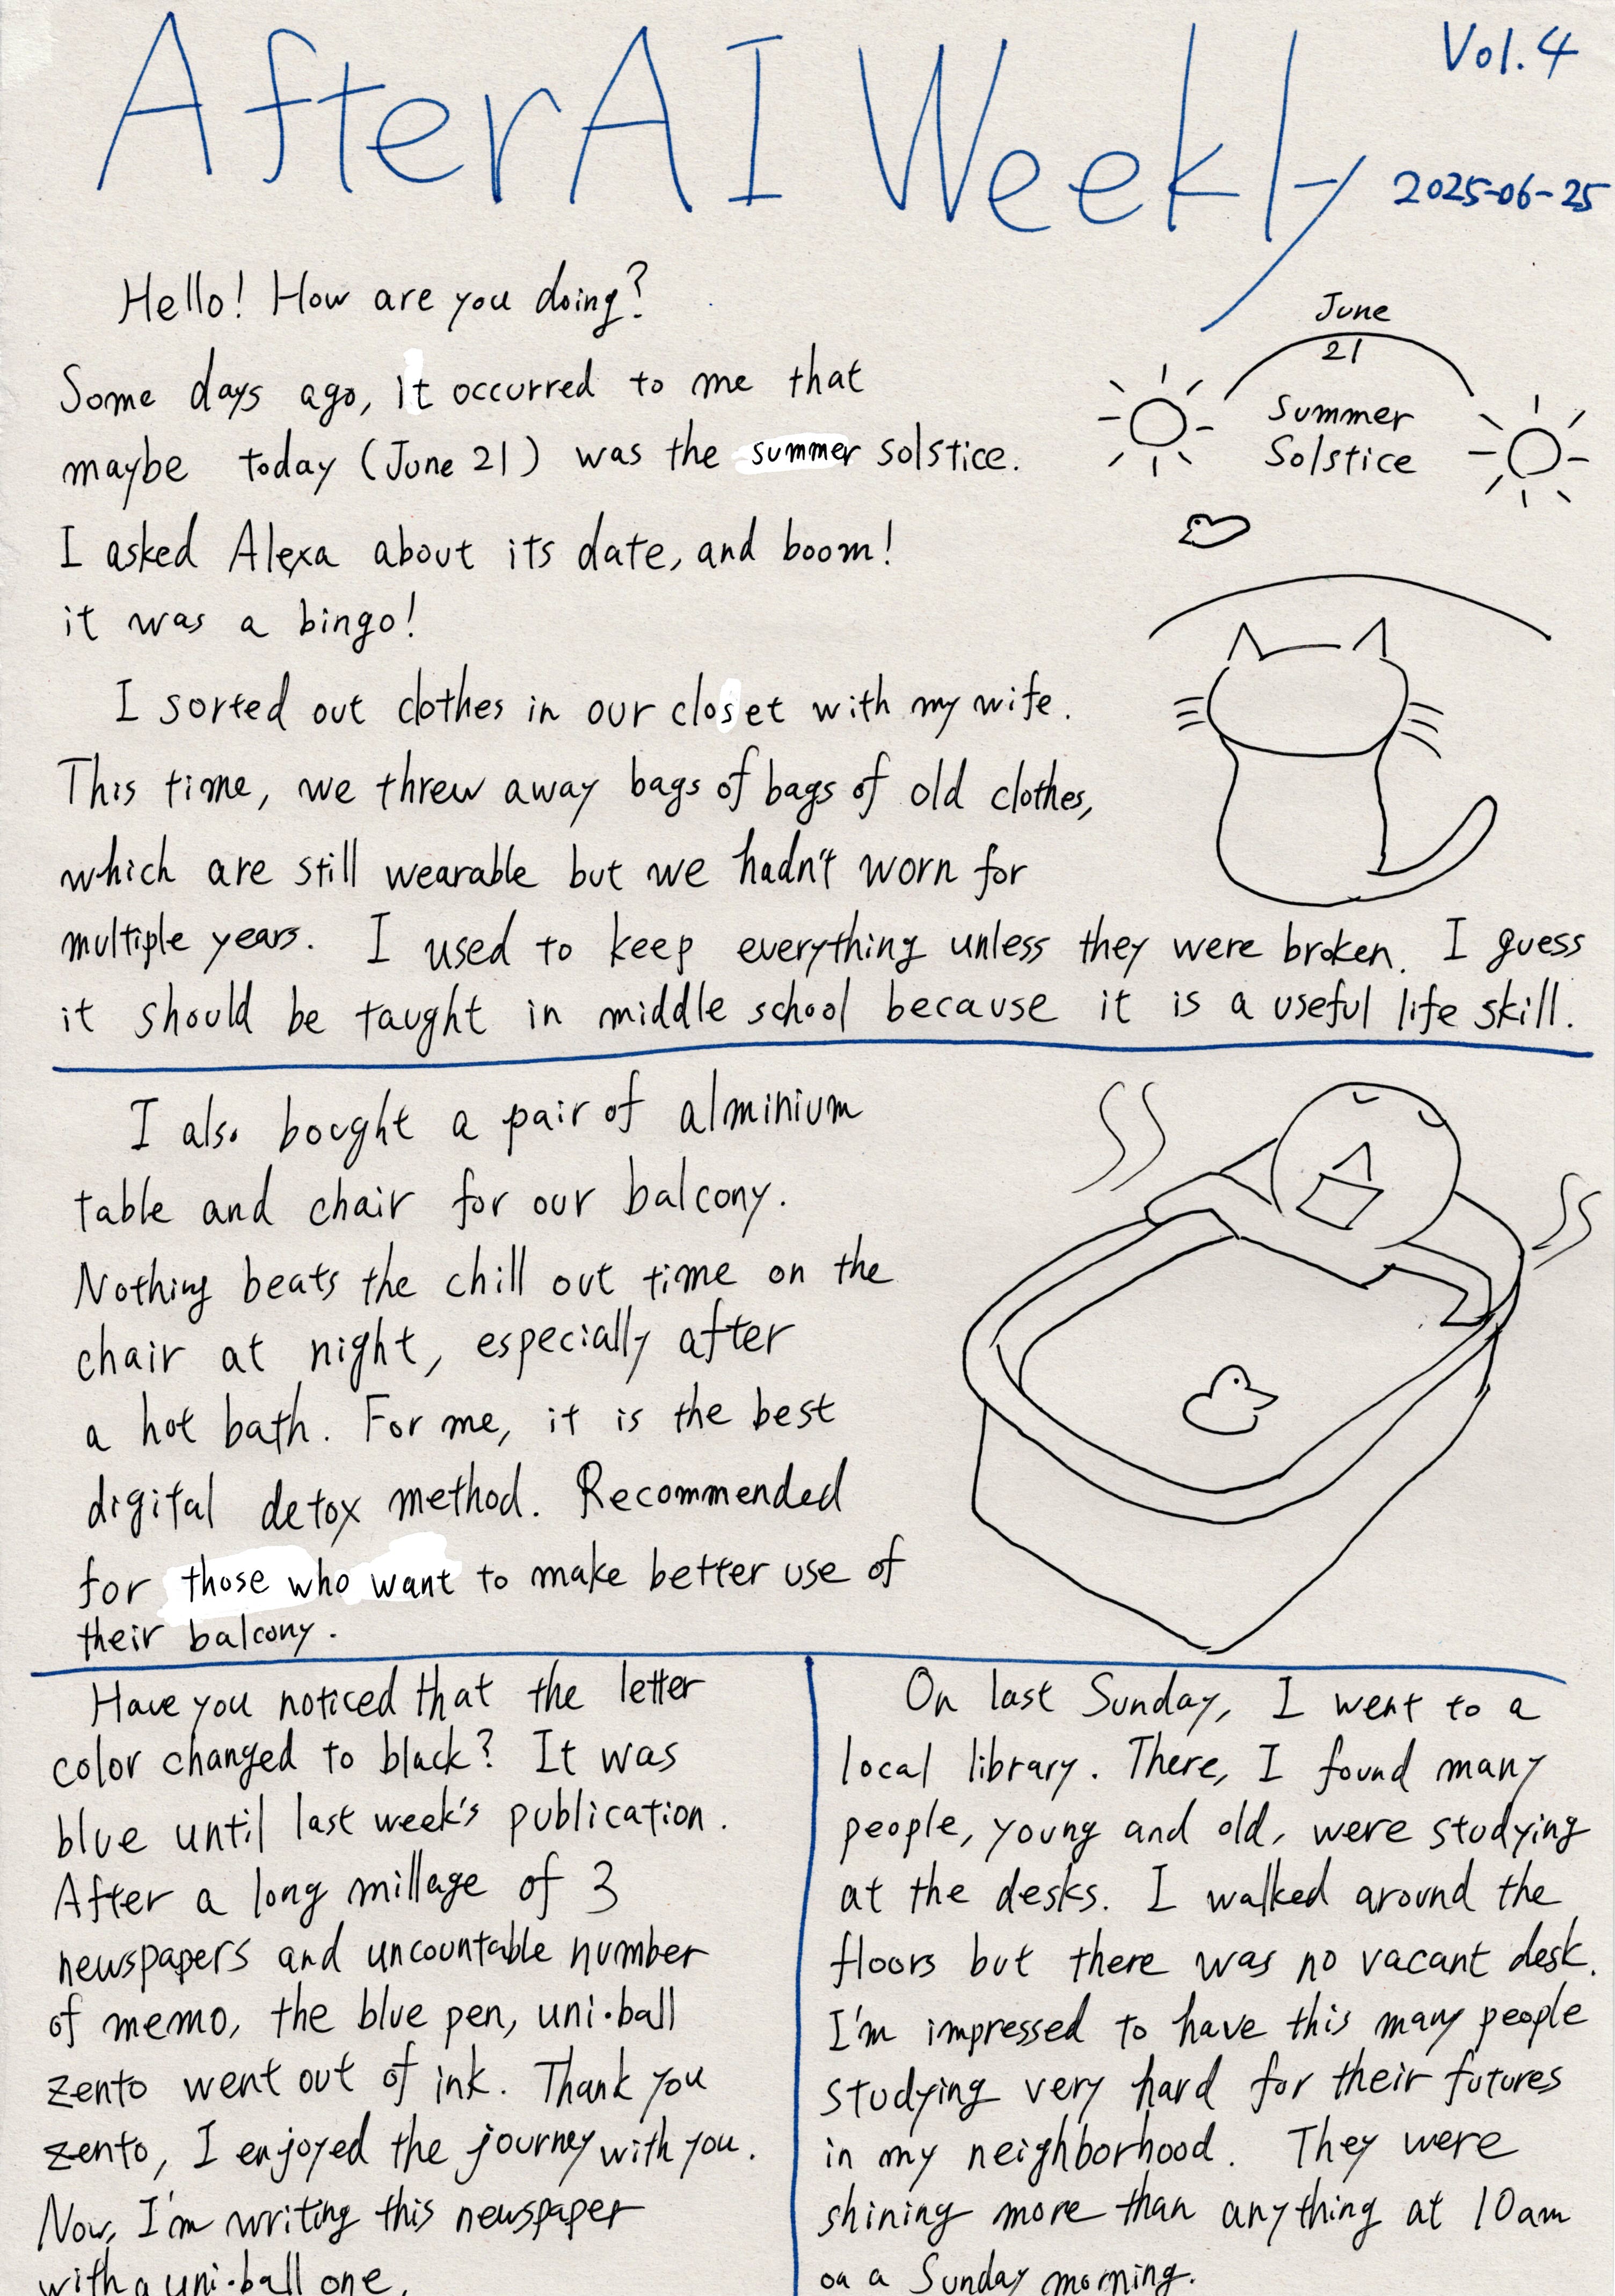 AfterAI Weekly
Vol.4
2025-06-25
Hello! How are you doing?
Some days ago, it occurred to me that
maybe today (June 21) was the summer solstice.
I asked Alexa about its date, and boom!
it was a bingo!
June
21
Summer
Solstice
I sorted out clothes in our closet with my wife.
This time, we threw away bags of bags of old clothes,
which are still wearable but we hadn't worn for
multiple years. I used to keep everything unless they were broken. I guess
it should be taught in middle school because it is a useful life skill.
I also bought a pair of alminium
table and chair for our balcony.
Nothing beats the chill out time on the
chair at night, especially after
a hot bath. For me, it is the best
digital detox method. Recommended
for those who want to make better use of
their balcony.
Have you noticed that the letter
color changed to black? It was
blue until last week's publication.
After a long millage of 3
newspapers and uncountable number
of memo, the blue pen, uni·ball
zento went out of ink. Thank you
zento, I enjoyed the journey with you.
Now, I'm writing this newspaper
with a uni·ball one.
On last Sunday, I went to a
local library. There, I found many
people, young and old, were studying
at the desks. I walked around the
floors but there was no vacant desk.
I'm impressed to have this many people
studying very hard for their futures
in my neighborhood. They were
shining more than anything at 10am
on a Sunday morning.